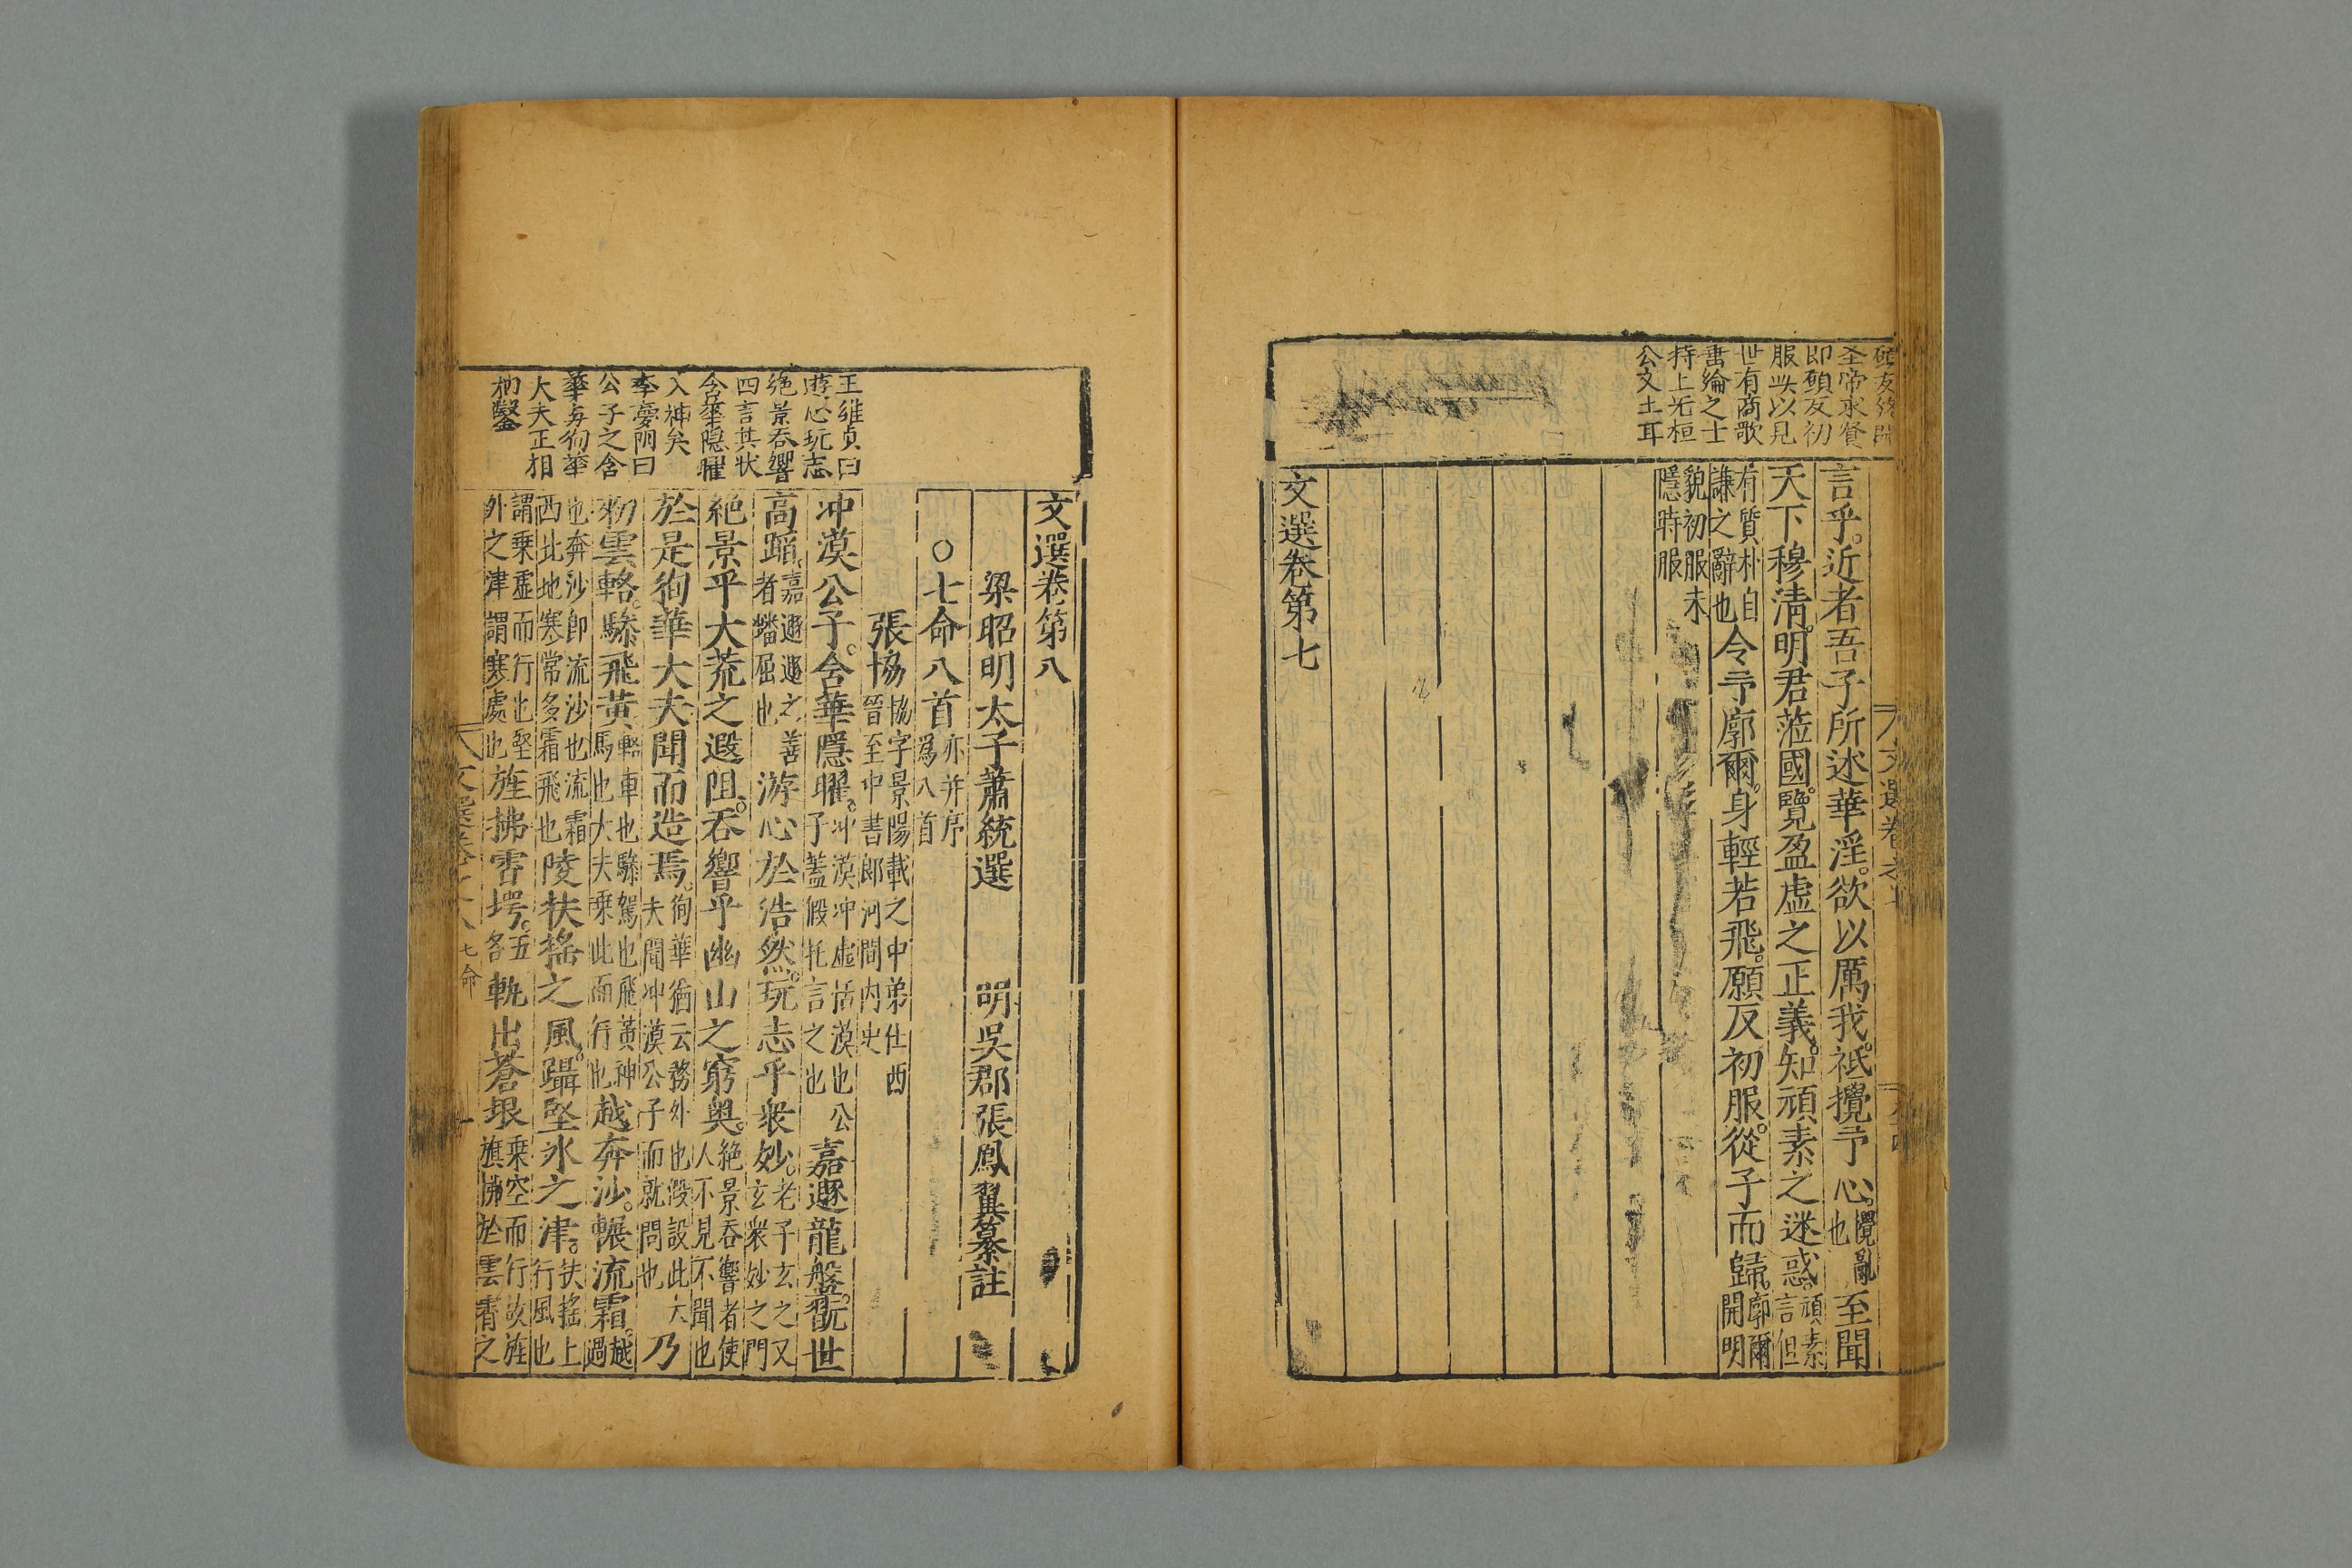 全帝求賢
即願反初
服𠫵以見
世有商歌
公文土耳
言乎。近者吾子所述華淫。欲以厲我。祇攪予心。攪亂也至聞
天下穆清。明君蒞國。覽盈虛之正義。知頑素之迷惑。頑素言但
有質朴自謙之辭也令予廓爾。身輕若飛。願反初服。從子而歸。廓爾開明
貌初服未隱時服
文選卷第七
王維貞曰
遊心玩志
絶景吞響
四言其状
含華隱曜
入神矣
李夢阳曰
公子之含
華与徇華
大夫正相
枘鑿
文選卷第八
梁昭明太子蕭統選 明吳郡張鳳翼纂註
○七命八首亦并序爲八首
張協協字景陽載之中弟仕西晉至中書郎河間内史
冲漠公子。含華隱曜。冲漠冲虛恬漠也公子蓋假托言之也嘉遯龍盤。翫世
高蹈。嘉遯遯之善者蟠屈也游心於浩然。玩志乎衆妙。老子玄之又玄衆妙之門
絶景乎大荒之遐阻。吞響乎幽山之窮奥。絶景吞響者使人不見不聞也
於是徇華大夫聞而造焉。徇華猶云務外也假設此大夫聞冲漠公子而就問也乃
勑雲輅。驂飛黄。輅車也驂駕也飛黄神馬也大夫乗此而行也越奔沙。輾流霜。越過
也奔沙即流沙也流霜西北地寒常多霜飛也陵扶摇之風。躡堅氷之津。扶摇上行風也
謂乗虛而行也堅外之津謂寒處也旌拂霄堮。五各軌出蒼垠。乗空而行故旌旗拂於雲霄之
文選卷之八 七命 一